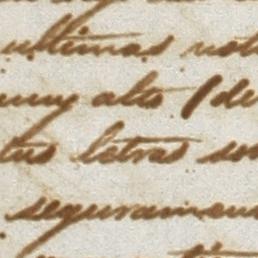 ultimas not
muy alto / de
tus letras son
seguramen